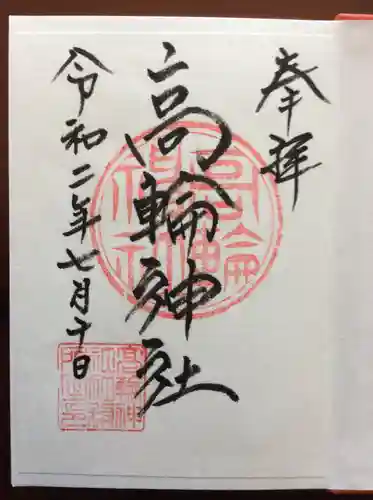 奉拝
高輪神社
令和二年七月十日